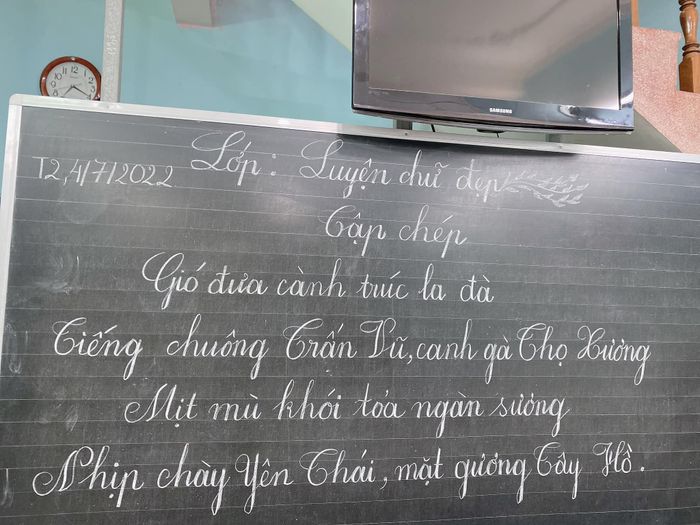 SAMSUNG
Lớp: Luyện chữ đẹp
T2, 4/7/2022
Tập chép
Gió đưa cành trúc la đà
Tiếng chuông Trấn Vũ, canh gà Thọ Xương
Mịt mù khói tỏa ngàn sương
Nhịp chày Yên Thái, mặt gương Tây Hồ.